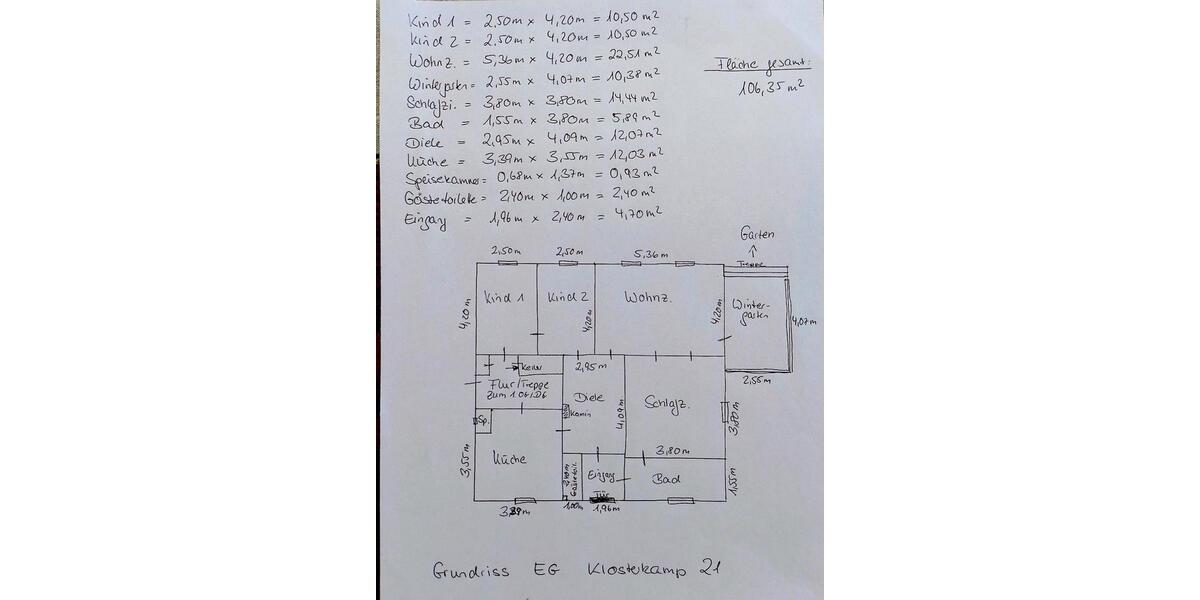 Kind 1 = 2,50m x 4,20m = 10,50 m²
Kind 2 = 2,50m x 4,20m = 10,50 m²
Wohnz. = 5,36m x 4,20m = 22,51 m²
Wintergarten = 2,55m x 4,07m = 10,38 m²
Schlafzi. = 3,80m x 3,80m = 14,44 m²
Bad = 1,55m x 3,80m = 5,89 m²
Diele = 2,95m x 4,09m = 12,07 m²
Küche = 3,39m x 3,55m = 12,03 m²
Speisekammer = 0,68m x 1,37m = 0,93 m²
Gästetoilette = 2,40m x 1,00m = 2,40 m²
Eingang = 1,96m x 2,40m = 4,70 m²
Fläche gesamt:
106,35 m²
Garten
2,50m
2,50m
5,36m
Treppe
Kind 1
Kind 2
Wohnz.
Winter-
garten
4,20m
4,20m
4,20m
4,07m
Keller
2,95m
2,55m
Flur/Treppe
zum 1.OG/DG
Diele
Schlafz.
Kamin
4,09m
3,80m
Sp.
3,80m
3,55m
Küche
2,40m
Gästetoil.
Eingang
Bad
1,55m
Tür
3,39m
1,00m
1,96m
Grundriss EG Klosterkamp 21